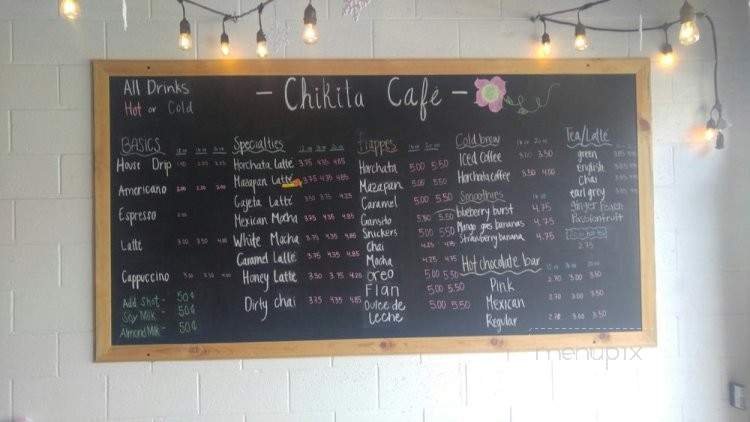 All Drinks
Hot or Cold
- Chikita Café -
BASICS
House Drip
Americano
Espresso
Latte
Cappuccino
Add Shot - 50¢
Soy Milk - 50¢
Almond Milk - 50¢
Specialties
Horchata Latte 3.75 4.35 4.85
Mazapan Latte 3.75 4.35 4.85
Cajeta Latte
Mexican Mocha 3.75 4.35 4.85
White Mocha 3.75 4.35 4.85
Caramel Latte 3.75 4.35 4.85
Honey Latte
Dirty chai 3.75 4.35 4.85
Frappes
Horchata 5.00 5.50
Mazapan 5.00 5.50
Caramel 5.00 5.50
Gansito 5.00 5.50
Snickers 5.00 5.50
Chai 4.25 4.75
Mocha 4.25 4.75
Oreo 5.00 5.50
Flan 5.00 5.50
Dulce de 5.00 5.50
Leche
Cold brew
Iced Coffee 3.00 3.50
Horchata coffee 3.50 4.00
Smoothies
blueberry burst 4.75
Mango goes bananas 4.75
Strawberry banana 4.75
Hot chocolate bar
Pink 2.70 3.00 3.50
Mexican 2.70 3.00 3.50
Regular 2.70 3.00 3.50
Tea/Latte
green
english
Chai
earl grey
ginger Peach
Passionfruit
2.75
menupix